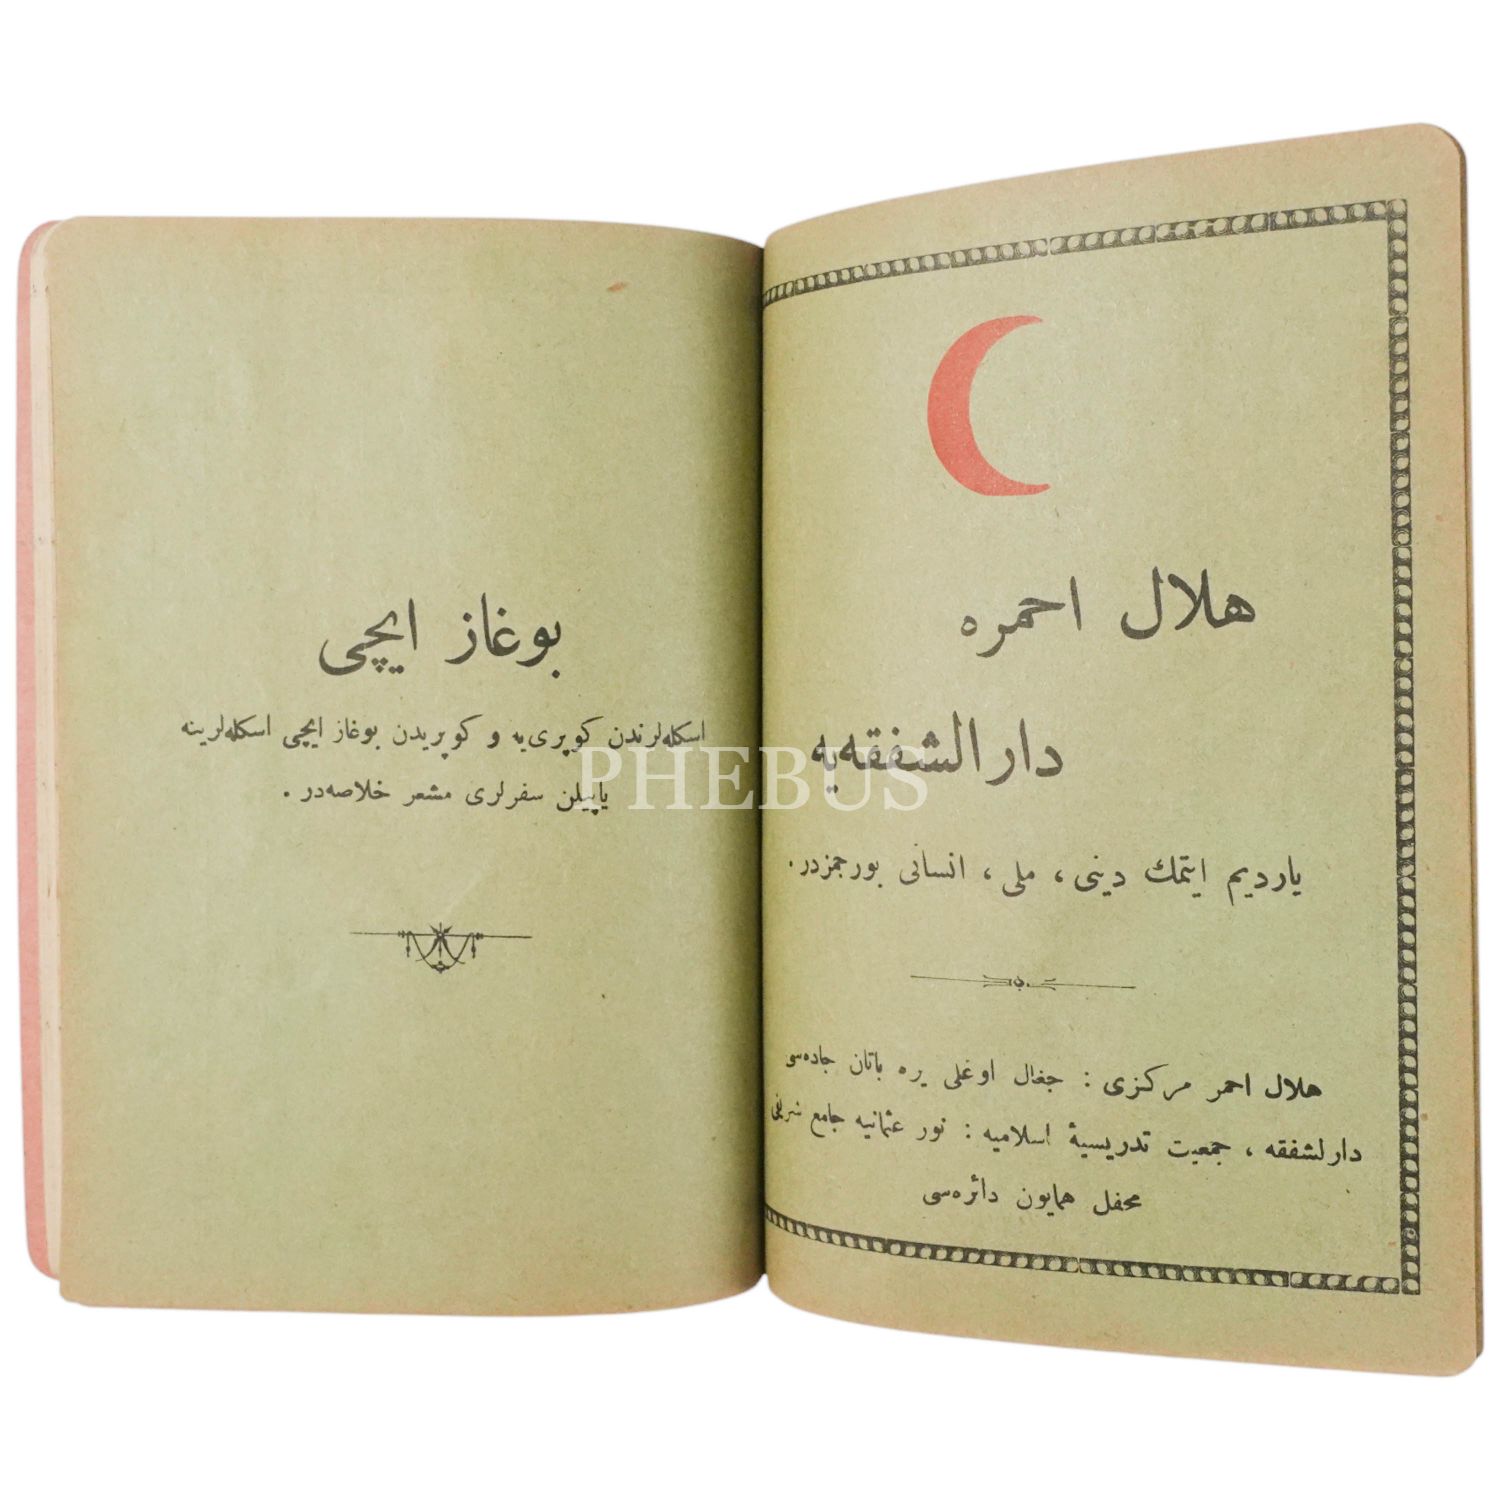 هلال احمره
دارالشفقه‌یه
یاردیم ایتمك دینی ، ملی ، انسانی بورجمزدر .
هلال احمر مركزی : جغال اوغلی یره باتان جاده‌سی
دارلشفقه ، جمعیت تدریسیهٔ اسلامیه : نور عثمانیه جامع شریفی
محفل همایون دائره‌سی
بوغاز ایچی
اسكله‌لرندن كوپری‌یه و كوپریدن بوغاز ایچی اسكله‌لرینه
یاپیلن سفرلری مشعر خلاصه‌در .
PHEBUS